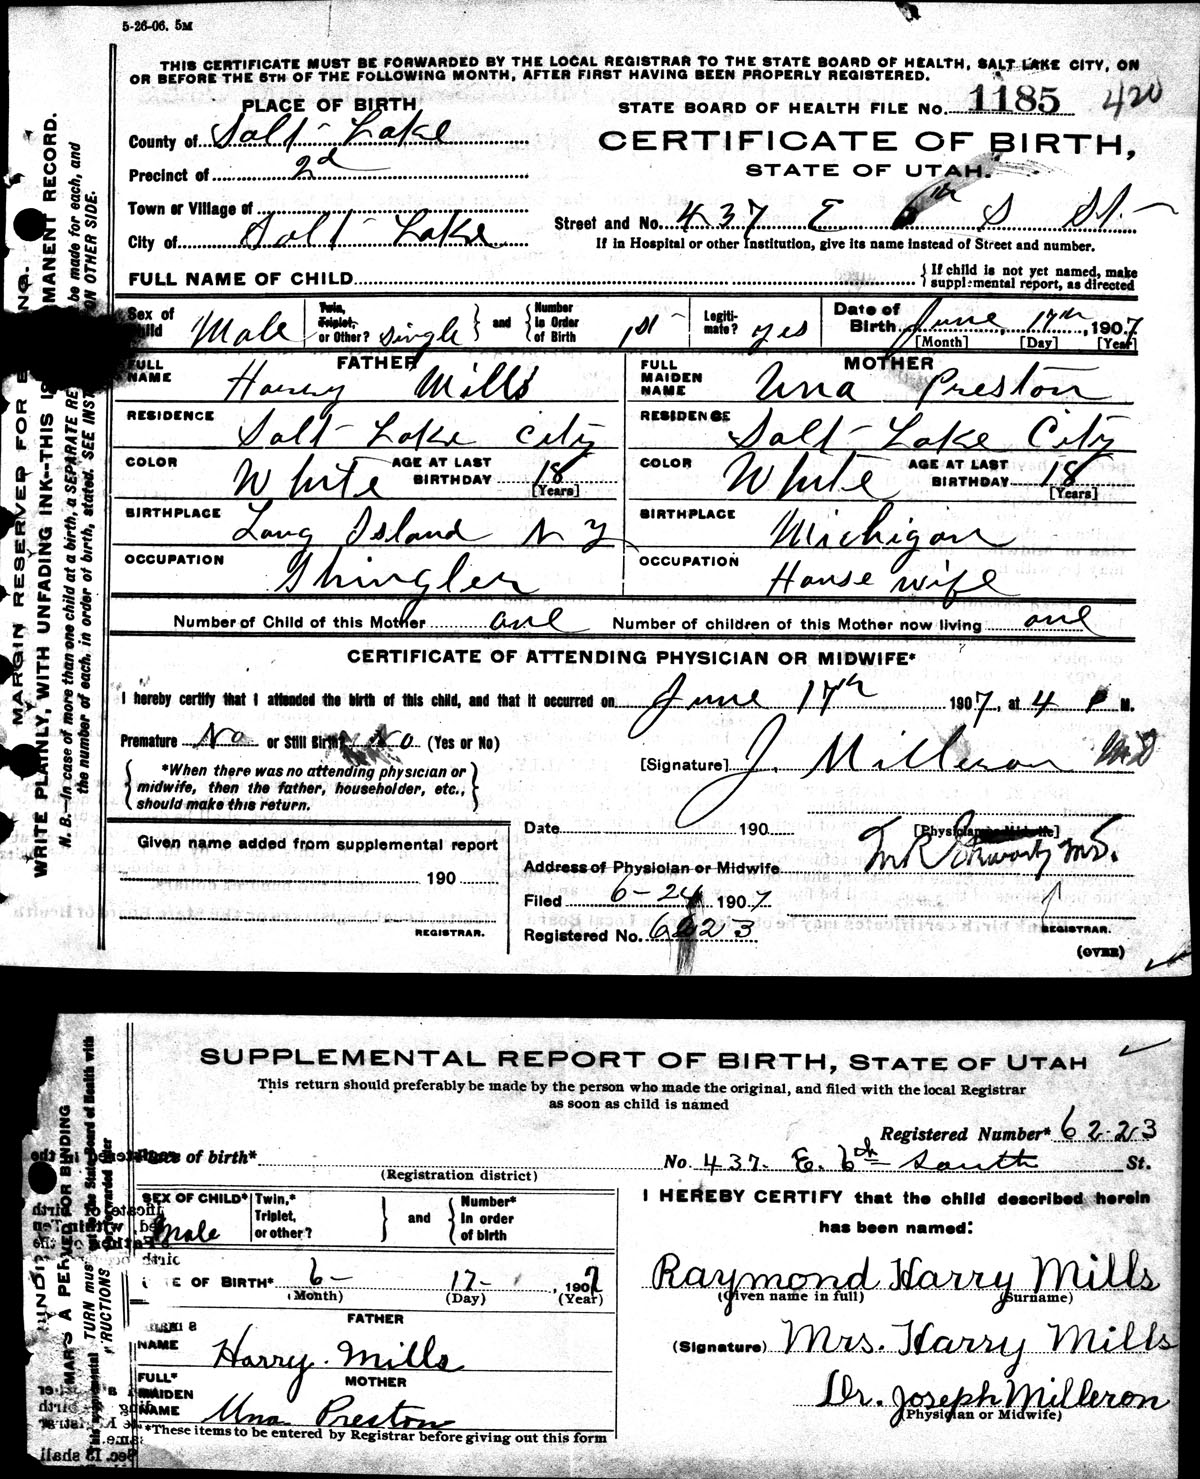 5-26-06. 5M
THIS CERTIFICATE MUST BE FORWARDED BY THE LOCAL REGISTRAR TO THE STATE BOARD OF HEALTH, SALT LAKE CITY, ON
OR BEFORE THE 5TH OF THE FOLLOWING MONTH, AFTER FIRST HAVING BEEN PROPERLY REGISTERED.
PLACE OF BIRTH
STATE BOARD OF HEALTH FILE No. 1185 420
County of Salt Lake
CERTIFICATE OF BIRTH,
STATE OF UTAH.
Precinct of 2d
Town or Village of
Street and No. 437 E 6th S St.
City of Salt Lake
If in Hospital or other Institution, give its name instead of Street and number.
FULL NAME OF CHILD
{ If child is not yet named, make
supplemental report, as directed
Sex of Child Male
Twin, Triplet, or Other? Single } and { Number in Order of Birth 1st
Legitimate? yes
Date of Birth June, 17th, 1907
[Month] [Day] [Year]
FATHER
FULL NAME Harry Mills
MOTHER
FULL MAIDEN NAME Una Preston
RESIDENCE Salt Lake City
RESIDENCE Salt Lake City
COLOR White AGE AT LAST BIRTHDAY 18 [Years]
COLOR White AGE AT LAST BIRTHDAY 18 [Years]
BIRTHPLACE Long Island N Y
BIRTHPLACE Michigan
OCCUPATION Shingler
OCCUPATION House wife
Number of Child of this Mother one Number of children of this Mother now living one
CERTIFICATE OF ATTENDING PHYSICIAN OR MIDWIFE*
I hereby certify that I attended the birth of this child, and that it occurred on June 17th 1907, at 4 P M.
Premature No or Still Birth? No (Yes or No)
[Signature] J. Milleron M.D
{ *When there was no attending physician or
midwife, then the father, householder, etc.,
should make this return. }
[Physician or Midwife]
Date 190
Given name added from supplemental report
190
REGISTRAR.
Address of Physician or Midwife
Filed 6-24 1907
Registered No. 6223
REGISTRAR.
(OVER)
MARGIN RESERVED FOR
WRITE PLAINLY, WITH UNFADING INK--THIS IS PERMANENT RECORD.
N. B.--In case of more than one child at a birth, a SEPARATE RE be made for each, and
the number of each, in order of birth, stated. SEE INST ON OTHER SIDE.
SUPPLEMENTAL REPORT OF BIRTH, STATE OF UTAH
This return should preferably be made by the person who made the original, and filed with the local Registrar
as soon as child is named
Registered Number* 6223
Place of birth*
(Registration district)
No. 437. E. 6th South St.
SEX OF CHILD* Male
Twin,* Triplet, or other? } and { Number* in order of birth
I HEREBY CERTIFY that the child described herein
has been named:
DATE OF BIRTH* 6- 17- , 1907
(Month) (Day) (Year)
Raymond Harry Mills
(Given name in full) (Surname)
FATHER
NAME Harry Mills
(Signature) Mrs. Harry Mills
MOTHER
FULL* MAIDEN NAME Una Preston
Dr. Joseph Milleron
(Physician or Midwife)
*These items to be entered by Registrar before giving out this form